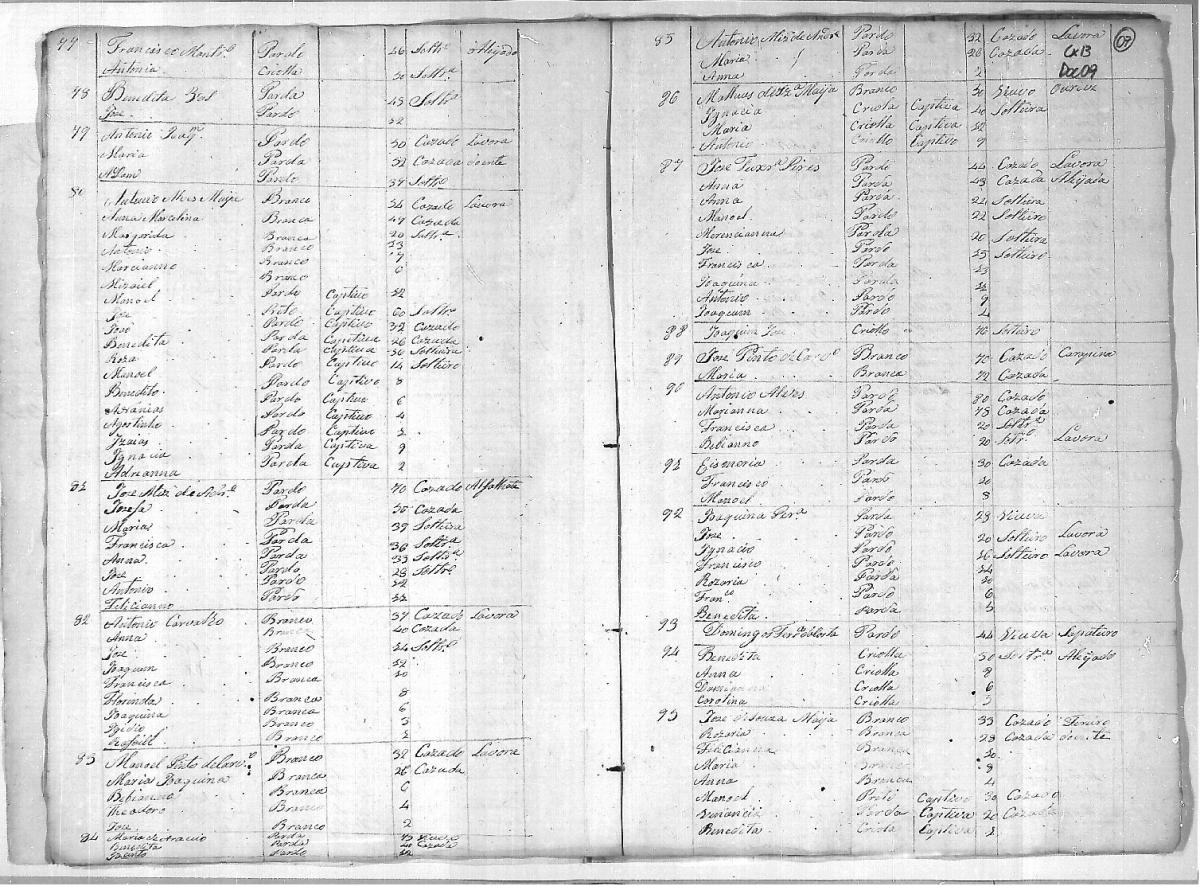 77 Francisco Mont.o Pardo 46 Solt.o Aleijado
Antonia Criolla 50 Solt.a
78 Benedita Parda 45 Solt.a
Joze Pardo 12
79 Antonio Pardo 50 Cazado Lavora
Maria Parda 51 Cazada doente
Adam Pardo 37 Solt.o
80 Antonio Branco 54 Cazado Lavora
Anna Marcelina Branca 47 Cazada
Margarida Branca 20 Solt.a
Antonio Branco 13
Marcianno Branco 7
Mizael Branco 6
Manoel Pardo Captivo 52
Joze Preto Captivo 60 Solt.o
José Pardo Captivo 32 Cazado
Benedita Parda Captiva 26 Cazada
Roza Parda Captiva 50 Solteira
Manoel Pardo Captivo 14 Solteiro
Benedito Pardo Captivo 8
Pardo Captivo 6
Agostinho Pardo Captivo 4
Izaias Pardo Captivo 2
Ignacia Parda Captiva 9
Adrianna Parda Captiva 2
81 Joze Miz' de Pardo 70 Cazado Alfalhate
Jozefa Parda 50 Cazada
Maria Parda 39 Solteira
Francisca Parda 36 Solt.a
Anna Parda 33 Solt.a
Joze Pardo 28 Solt.o
Antonio Pardo 22
Felicianno Pardo 12
82 Antonio Carvalho Branco 37 Cazado Lavora
Anna Branca 40 Cazada
Joze Branco 14 Solt.o
Joaquim Branco 12
Francisca Branca 10
Florinda Branca 8
Joaquina Branca 6
Branco 3
Rafaill Branco 2
83 Manoel Pinto Branco 32 Cazado Lavora
Maria Joaquina Branca 26 Cazada
Bebianno Branca 6
Theodoro Branco 4
Joze Branco 2
84 Maria Parda 75
Benedita Parda 40 Cazada
Bento Pardo 12
07
Cx13
Doc09
85 Antonio Miz' de Pardo 32 Cazado Lavora
Maria Parda 26 Cazada
Anna Parda 2
86 Matheus Maija Branco 50 Ourives
Ignacia Criola Captiva 40 Solteira
Maria Criolla Captiva 12
Antonio Criollo Captivo 9
87 Joze Pires Pardo 44 Cazado Lavora
Anna Parda 43 Cazada Aleijada
Anna Parda 24 Solteira
Manoel Pardo 22 Solteiro
Merencianna Parda 20 Solteira
Joze Pardo 15 Solteiro
Francisca Parda 13
Joaquina Parda
Antonio Pardo 9
Joaquim Pardo 4
88 Joaquim Joze Criollo 76 Solteiro
89 José Pinto Branco 70 Cazado Carapina
Maria Branca 72 Cazada
90 Antonio Alves Pardo 80 Cazado
Marianna Parda 75 Cazada
Francisca Parda 20 Solt.a
Bebianno Pardo 20 Solt.o Lavora
91 Parda 30 Cazada
Francisco Pardo 10
Manoel Pardo 8
92 Joaquina Parda 23 Viuva
Joze Pardo 20 Solteiro Lavora
Ignacio Pardo 16 Solteiro Lavora
Francisco Pardo 14
Rozaria Parda 10
Fran.co Pardo 6
Benedita Parda 3
93 Domingos Pardo 44 Viuva Sapateiro
94 Benedita Criolla 50 Solt.a Aleijado
Anna Criolla 8
Criolla 6
Carolina Criolla 3
95 Joze d'Souza Maija Branco 33 Cazado Ferreiro
Rozaria Branca 23 Cazada doente
Felicianna Branca 10
Maria Branca 8
Anna Branca 4
Manoel Preto Captivo 30 Cazado
Venancia Parda Captiva 20 Cazada
Benedita Criola Captiva 2